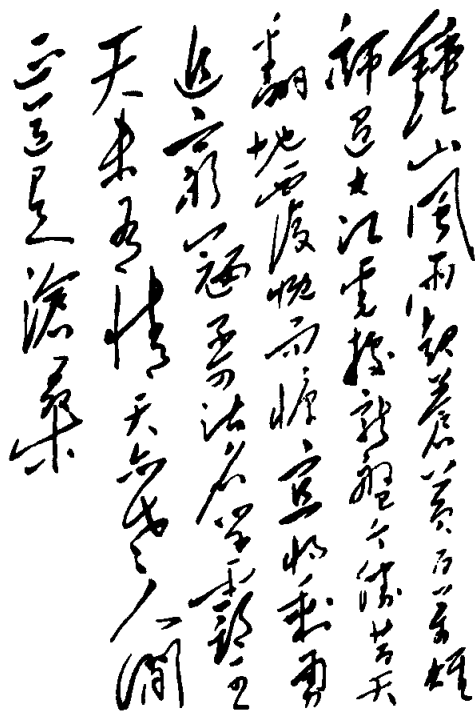 鍾山風雨起蒼黃百萬雄
師過大江虎據龍盤今勝昔天
翻地覆慨而慷宜將剩勇
追窮寇不可沽名學霸王
天若有情天亦老人間
正道是滄桑